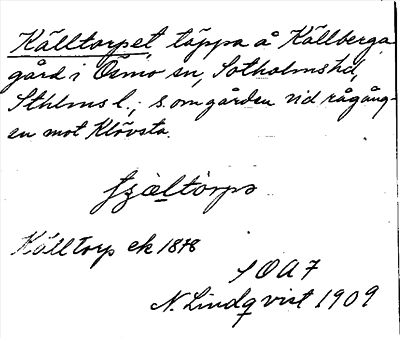 Källtorpet täppa å Källberga
gård i Ösmo sn, Sotholms hd,
Sthlms l.; s. om gården vid rågång-
en mot Klövsta.
Källtorp ek 1878
SOA 7
N. Lindqvist 1909